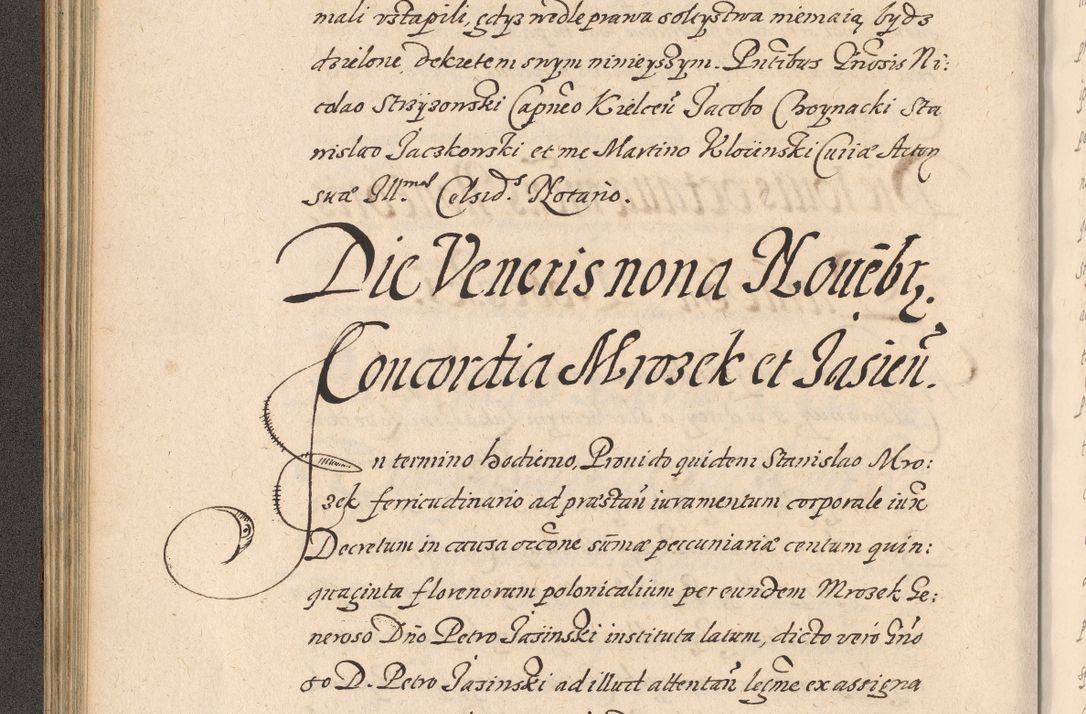 mali vstąpili, gdyz wedle prawa soleystwa niemaią bydz
dzielone, dekretem swym ninieyszym. Pntibus Gnosis Ni:
colao Strzyzowski Capneo Kielcen Jacobo Choynacki Sta
nislao Jaczkowski et me Martino Klosinski Curiæ Actory
suæ Ill.mæ Celsid.s Notario.
Die Veneris nona Nouēbr.
Concordia Mrozek et Jasień.
In termino hodierno, Prouido quidem Stanislao Mro:
zek ferricudinario ad præstañ iuramentum corporale iux
Decretum in causa occōne sūmæ peccuniariæ centum quin:
quaginta florenorum polonicalium per eundem Mrozek Ge:
neroso Dño Petro Jasinski instituta latum, dicto vero Gño
so D. Petro Jasinski ad illud attentañ legme ex assigna